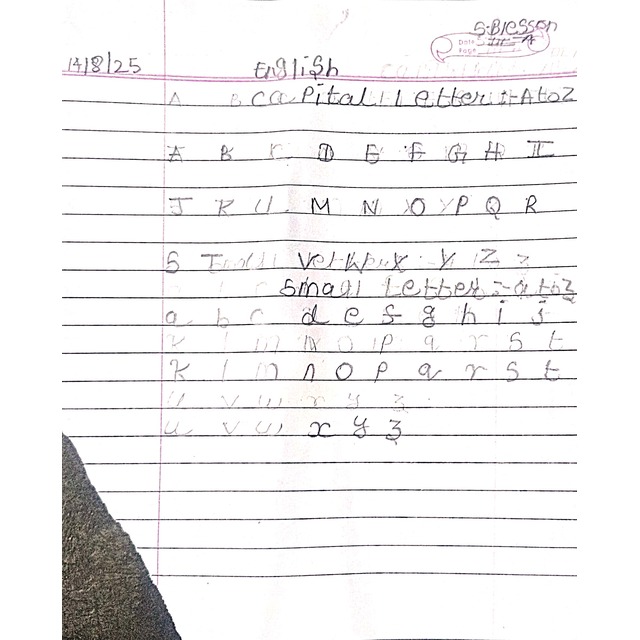 S. Blessen
Date
III - A
Page
14/8/25 English
Capital Letter :- A to Z
A B C D E F G H I
J K L M N O P Q R
S T V W X Y Z
Small Letter :- a to z
a b c d e f g h i j
k l m N o p q r s t
K l m n o p q r s t
u v w x y z
u v w x y z